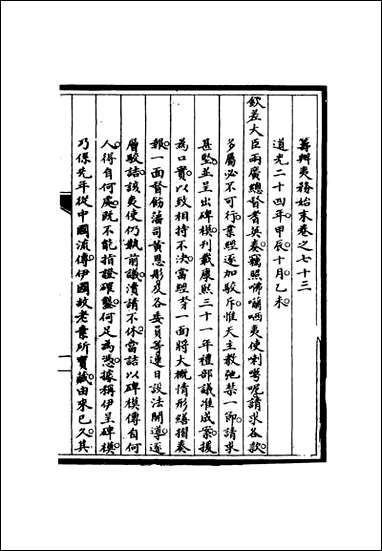 籌辦夷務始末卷之七十三
道光二十四年甲辰十月乙未
欽差大臣兩廣總督耆英奏竊照咈囒哂夷使喇噣呢請求各款
多屬必不可行業經逐加駁斥惟天主教弛禁一節請求
甚堅並呈出碑模刊載康熙三十一年禮部議准成案援
為口實以致相持不決當經耆一面將大概情形繕摺奏
報一面督飭藩司黃恩彤及各委員等連日設法開導逐
層駁詰該夷使仍執前議瀆請不休當詰以碑模傳自何
人得自何處既不能指證確鑿何足為憑據稱伊呈碑模
乃係先年從中國流傳伊國故老業所寶藏由來已久其